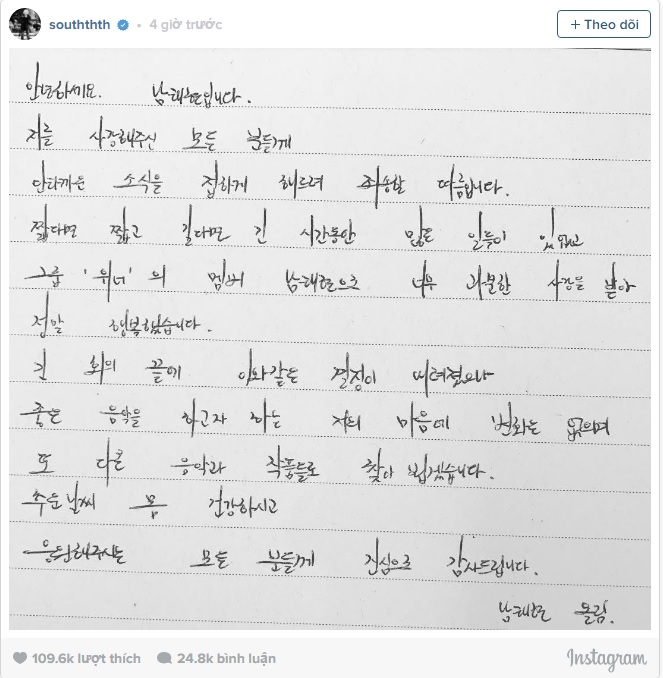 southhth • 4 giờ trước
+ Theo dõi
안녕하세요. 남태현입니다.
저를 사랑해주신 모든 분들께
안타까운 소식을 접하게 해드려 죄송할 따름입니다.
짧다면 짧고 길다면 긴 시간동안 많은 일들이 있었고
그룹 '위너'의 멤버 남태현으로 너무 과분한 사랑을 받아
정말 행복했습니다.
긴 회의 끝에 이와같은 결정이 내려졌으나
좋은 음악을 하고자 하는 저의 마음에 변화는 없으며
또 다른 음악과 작품들로 찾아 뵙겠습니다.
추운날씨 몸 건강하시고
응원해주시는 모든 분들께 진심으로 감사드립니다.
남태현 올림.
109.6k lượt thích 24.8k bình luận
Instagram